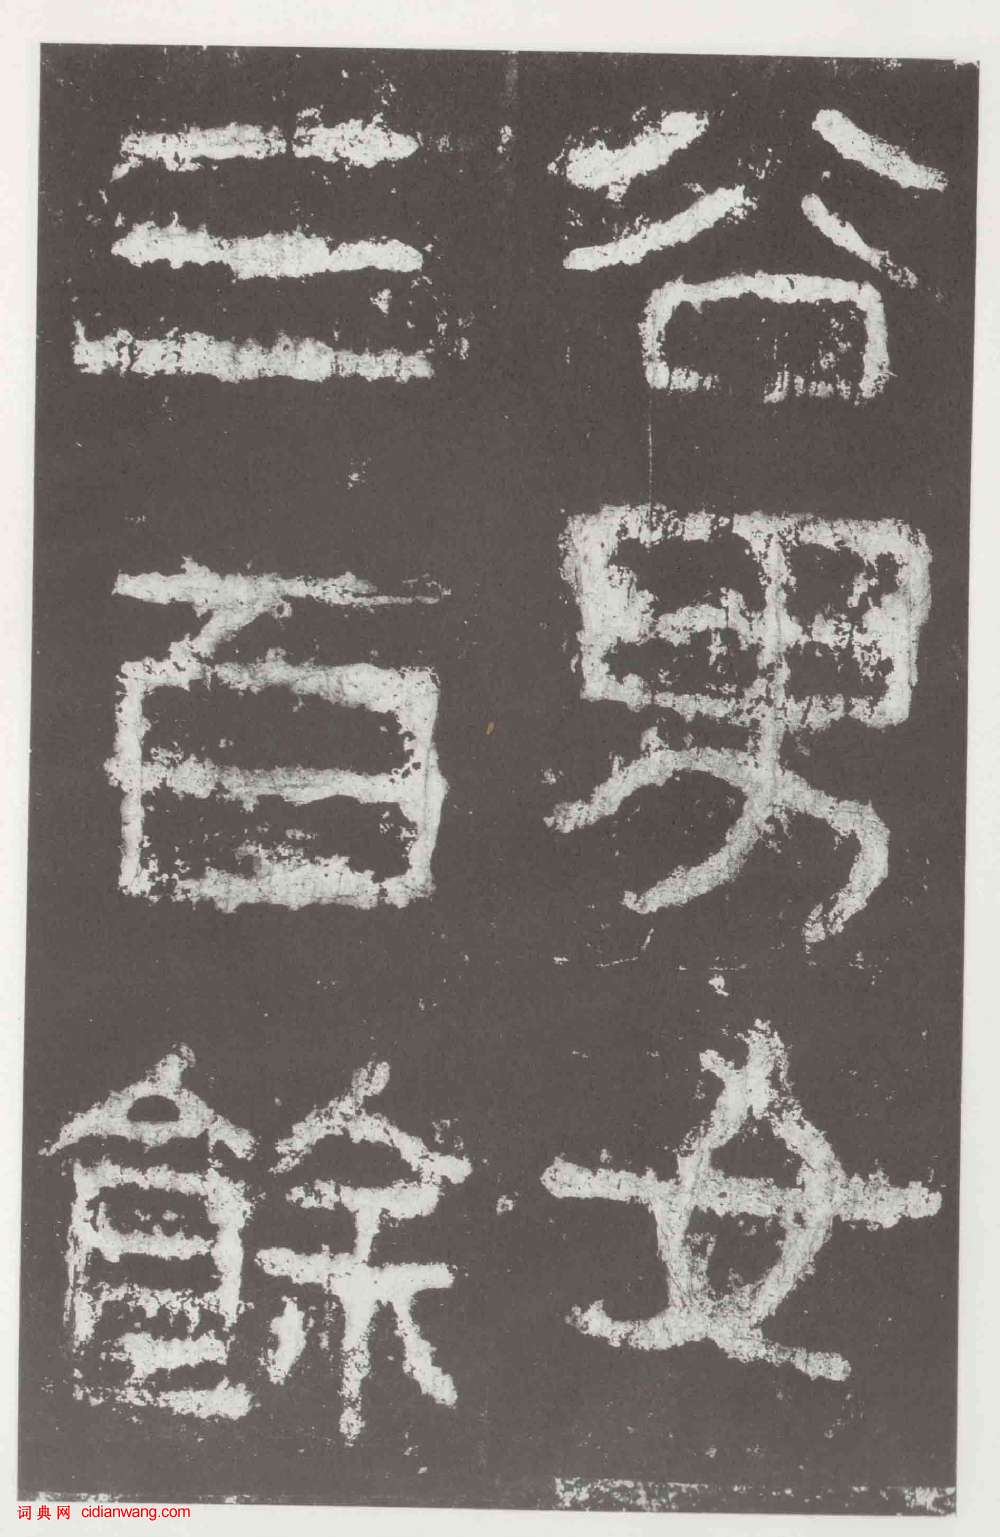 谷男女
三百餘
词典网 cidianwang.com